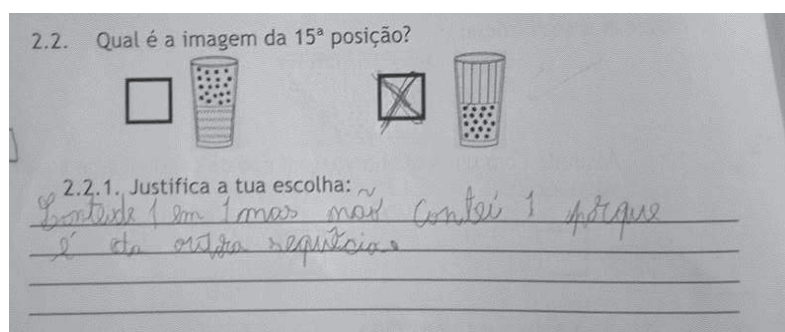 2.2. Qual é a imagem da 15ª posição?
2.2.1. Justifica a tua escolha:
Contei de 1 em 1 mas não contei 1 porque
é da outra sequência.